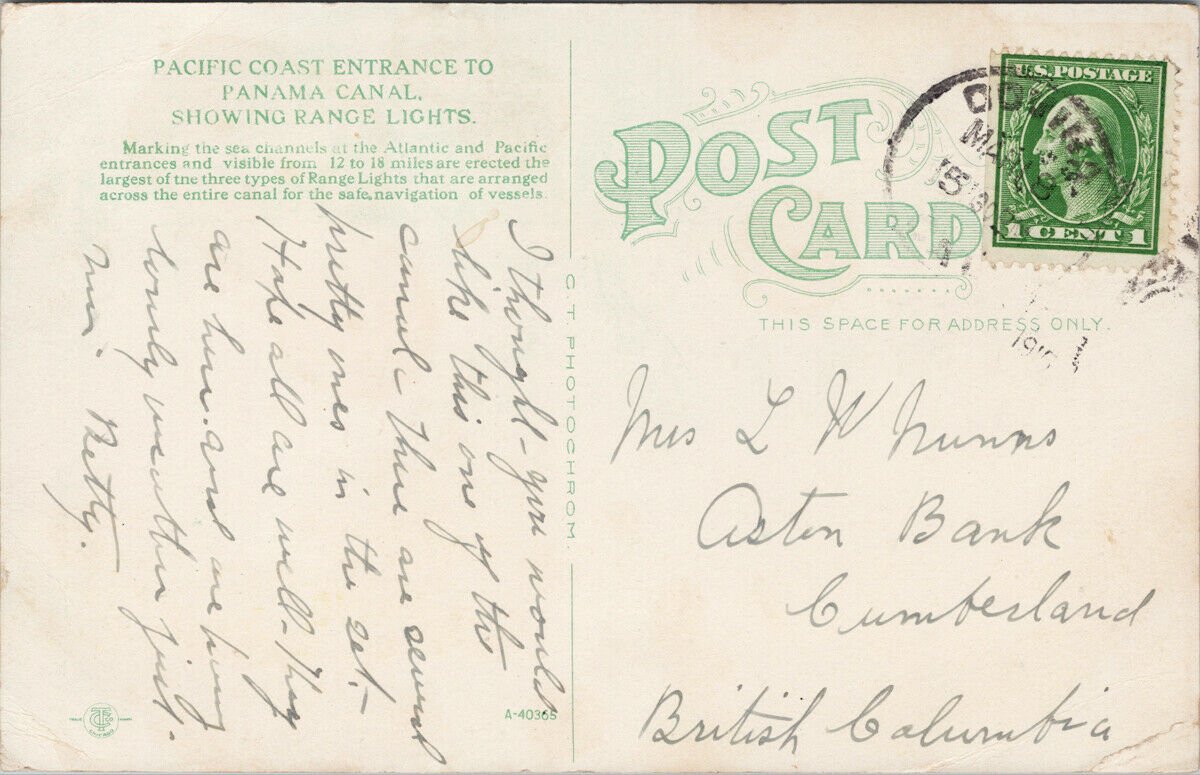 PACIFIC COAST ENTRANCE TO
PANAMA CANAL,
SHOWING RANGE LIGHTS.
Marking the sea channels at the Atlantic and Pacific
entrances and visible from 12 to 18 miles are erected the
largest of the three types of Range Lights that are arranged
across the entire canal for the safe navigation of vessels.
I thought you would
like this one of the
canal- There are several
pretty ones in the set.-
Hope all are well- They
are here and are having
lovely weather just
now. Betty.
C. T. PHOTOCHROM.
A-40365
TRADE CT CO MARK
CHICAGO
POST
CARD
THIS SPACE FOR ADDRESS ONLY.
U.S. POSTAGE
1 CENT 1
MA
Mrs L W Nunns
Aston Bank
Cumberland
British Columbia